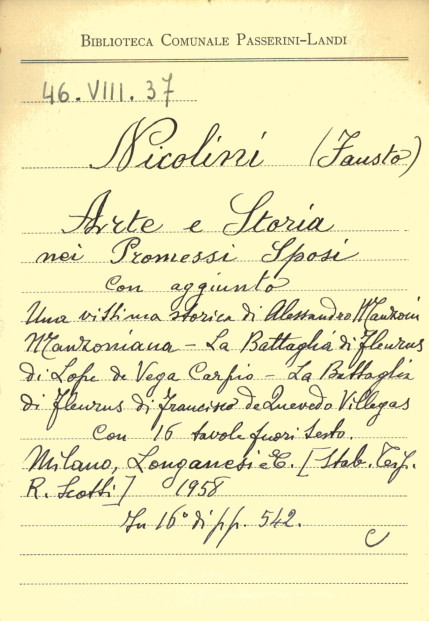 BIBLIOTECA COMUNALE PASSERINI-LANDI
46. VIII. 37
Nicolini (Fausto)
Arte e Storia
nei Promessi Sposi
con aggiunto
Una vittima storica di Alessandro Manzoni
Manzoniana - La Battaglia di Fleurus
di Lope de Vega Carpio - La Battaglia
di Fleurus di Francisco de Quevedo Villegas
Con 16 tavole fuori testo.
Milano, Longanesi e C. [Stab. Tip.
R. Scotti] 1958
In 16° di pp. 542.
C